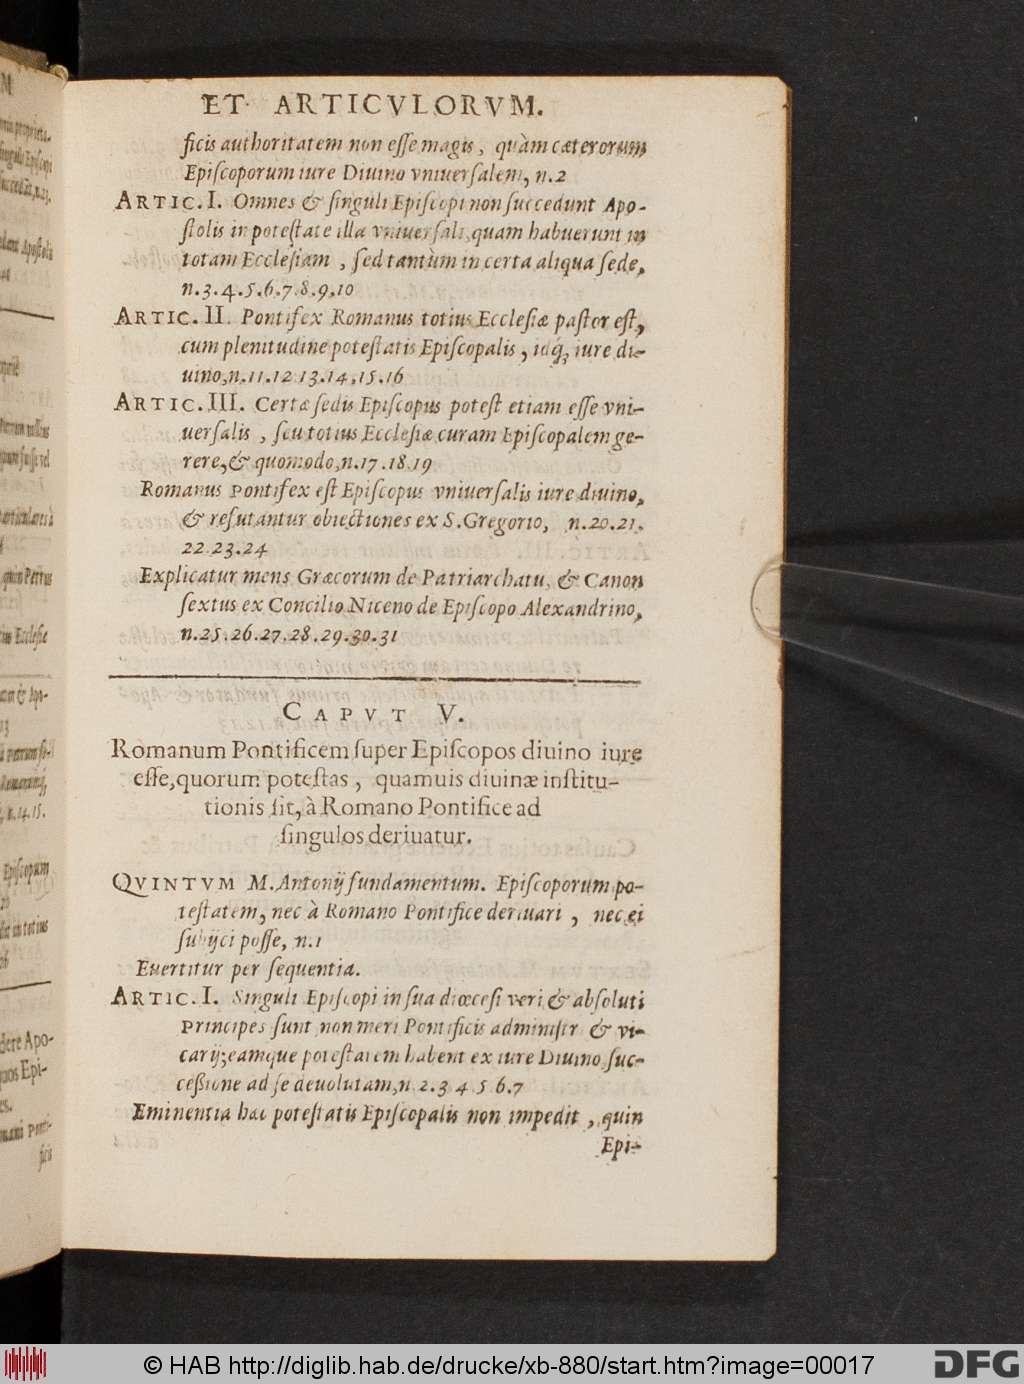 ET ARTICVLORVM.
ficis authoritatem non eſſe magis, quàm cæterorum
Epiſcoporum iure Diuino vniuerſalem, n.2
ARTIC. I. Omnes & ſinguli Epiſcopi non ſuccedunt Apo-
ſtolis in poteſtate illa vniuerſali, quam habuerunt in
totam Eccleſiam, ſed tantùm in certa aliqua ſede,
n.3.4.5.6.7.8.9.10
ARTIC. II. Pontifex Romanus totius Eccleſiæ paſtor eſt,
cum plenitudine poteſtatis Epiſcopalis, idq́; iure di-
uino, n.11.12 13.14.15.16
ARTIC. III. Certæ ſedis Epiſcopus poteſt etiam eſſe vni-
uerſalis, ſeu totius Eccleſiæ curam Epiſcopalem ge-
rere, & quomodo, n.17.18.19
Romanus Pontifex eſt Epiſcopus vniuerſalis iure diuino,
& refutantur obiectiones ex S. Gregorio, n.20.21.
22 23.24
Explicatur mens Græcorum de Patriarchatu, & Canon
ſextus ex Concilio Niceno de Epiſcopo Alexandrino,
n.25.26.27.28.29.30.31
CAPVT V.
Romanum Pontificem ſuper Epiſcopos diuino iure
eſſe, quorum poteſtas, quamuis diuinæ inſtitu-
tionis ſit, à Romano Pontifice ad
ſingulos deriuatur.
QVINTVM M. Antonij fundamentum. Epiſcoporum po-
teſtatem, nec à Romano Pontifice deriuari, nec ei
ſubijci poſſe, n.1
Euertitur per ſequentia.
ARTIC. I. Singuli Epiſcopi in ſua diœceſi veri & abſoluti
Principes ſunt non meri Pontificis adminiſtri & vi-
carij; eamque poteſtatem habent ex iure Diuino ſuc-
ceßione ad ſe deuolutam, n 2.3 4 5 6.7
Eminentia hac poteſtatis Epiſcopalis non impedit, quin
Epi-
© HAB http://diglib.hab.de/drucke/xb-880/start.htm?image=00017
DFG